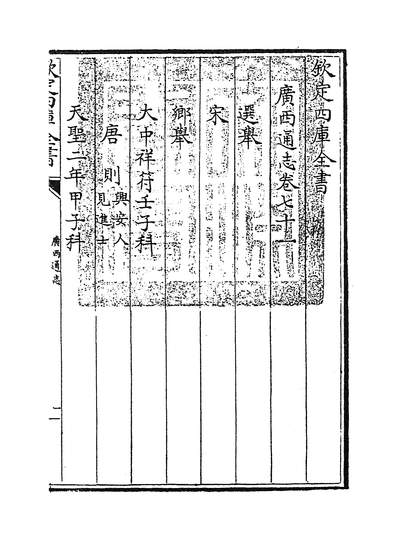 欽定四庫全書
廣西通志卷七十一
選舉
宋
鄉舉
大中祥符壬子科
唐則 興安人見進士
天聖二年甲子科
欽定四庫全書
廣西通志